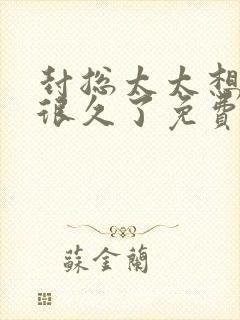 封总太太想
很久了免費
蘇金蘭